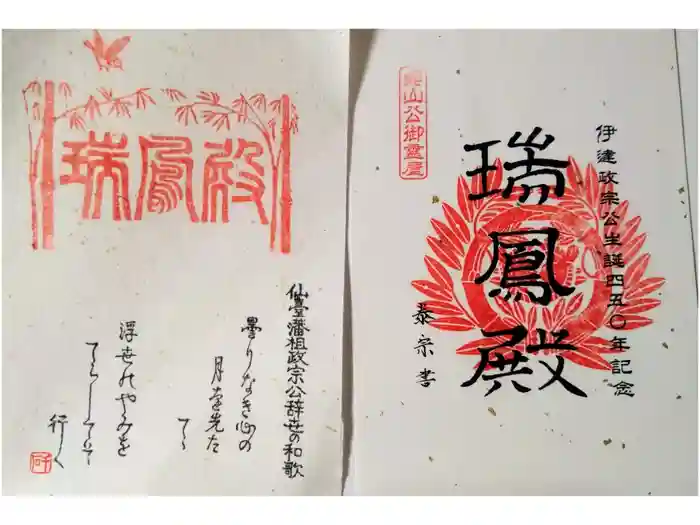 瑞鳳殿
仙臺藩祖政宗公辞世の和歌
曇りなき心の
月を先だ
てゝ
浮世のやみを
てらしてぞ
行く
貞山公御霊屋
伊達政宗公生誕四五〇年記念
瑞鳳殿
泰宗書